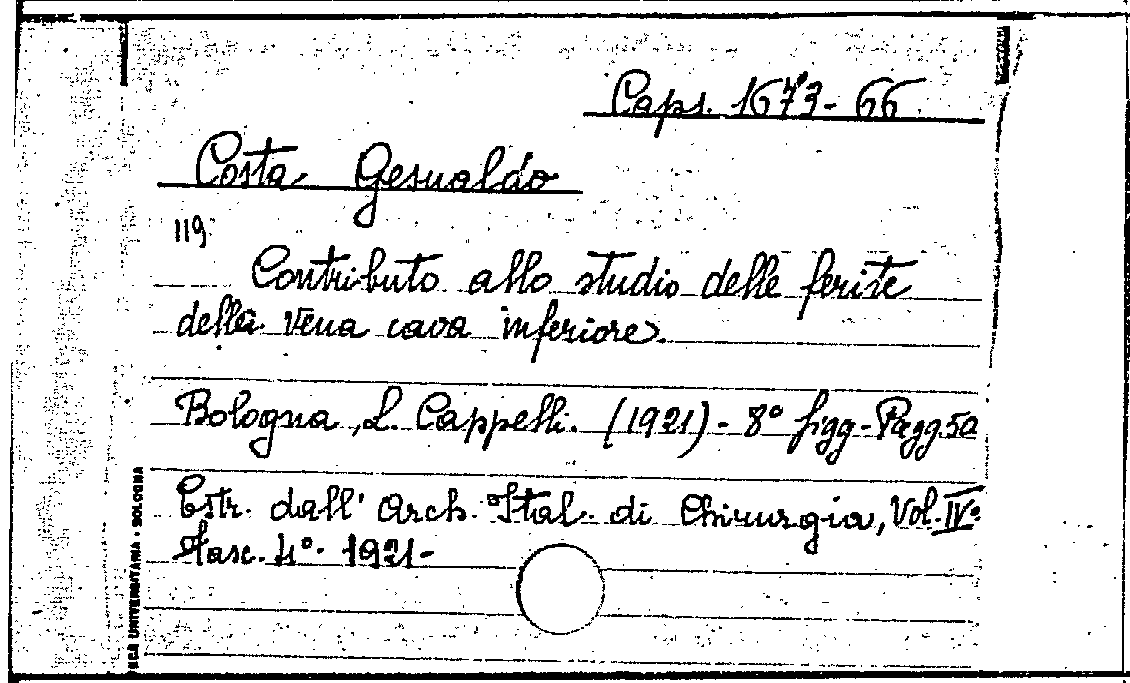 Caps. 1673-66
Costa Gesualdo
119
Contributo allo studio delle ferite
della vena cava inferiore.
Bologna, L. Cappelli. (1921) - 8° figg - Pagg 50
Estr. dall' Arch. Ital. di Chirurgia, Vol. IV°
Fasc. 4° - 1921 -
UNIVERSITARIA • BOLOGNA